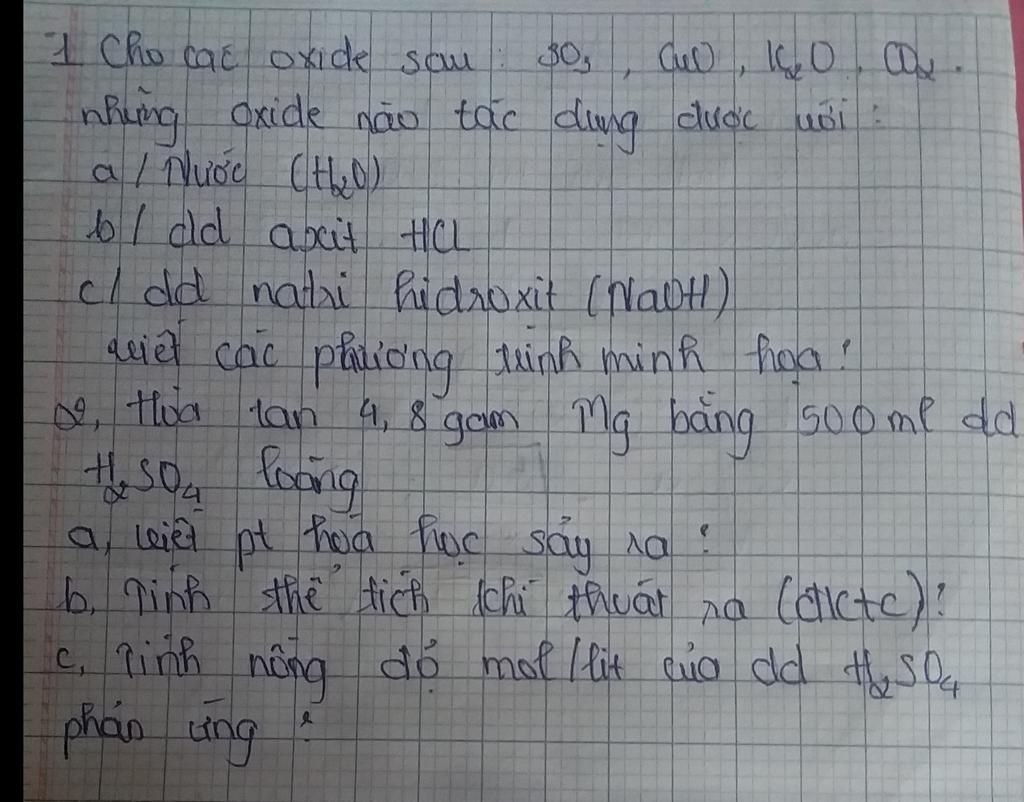 1 Cho các oxide sau : SO₃, CuO, K₂O, CO₂.
những oxide nào tác dụng được với :
a / Nước (H₂O)
b / dd axit HCl
c / dd natri hidroxit (NaOH)
viết các phương trình minh họa?
2, Hòa tan 4,8 gam Mg bằng 500 ml dd
H₂SO₄ loãng
a, viết pt hóa học sảy ra ?
b, Tính thể tích khí thoát ra (đktc)?
c, Tính nồng độ mol / lit của dd H₂SO₄
phản ứng ?